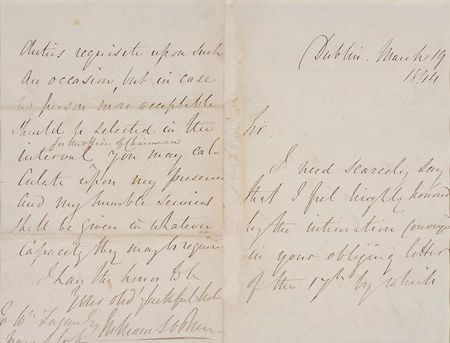 Dublin. March 19
1844
Sir
I need scarcely say
that I feel highly honored
by the intimation convey
in your obliging letter
of the 17th by which
duties requisite upon such
an occasion, but in case
no person more acceptable
should be selected in the
interval, you may cal-
in the office of Chairman
culate upon my presence
and my humble services
shall be given in whatever
capacity they may be requir
I have the honor to be
your obt faithful
William